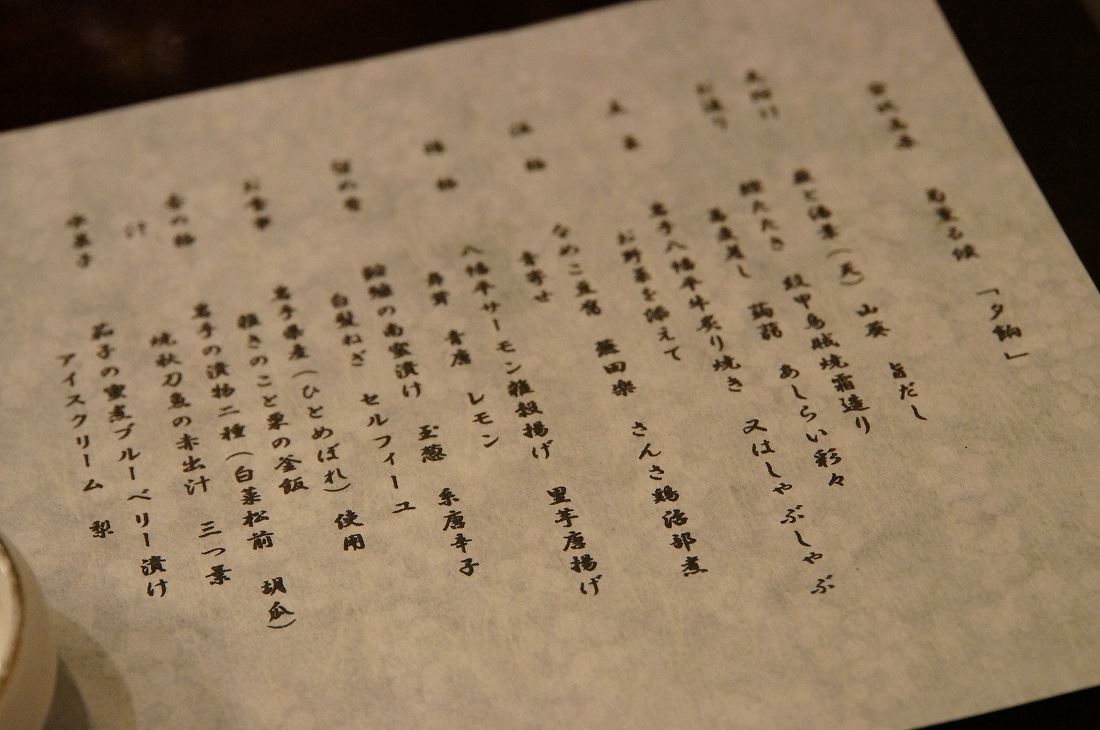 「夕餉」
先附け
旨だし
お造り 鰹たたき 紋甲烏賊焼霜造り
あしらい彩々
主菜 岩手八幡平牛炙り焼き 又はしゃぶしゃぶ
お野菜を添えて
温物 なめこ豆腐 さんさ鶏治部煮
青寄せ
揚物 八幡平サーモン雑穀揚げ 里芋唐揚げ
舞茸 青唐 レモン
留め肴 の南蛮漬け 玉葱 糸唐辛子
白髪ねぎ セルフィーユ
お食事 岩手県産(ひとめぼれ)使用
雑きのこと栗の釜飯
香の物 岩手の漬物二種(白菜松前 胡瓜)
汁 焼秋刀魚の赤出汁 三つ葉
水菓子 茄子の蜜煮ブルーベリー漬け
アイスクリーム 梨